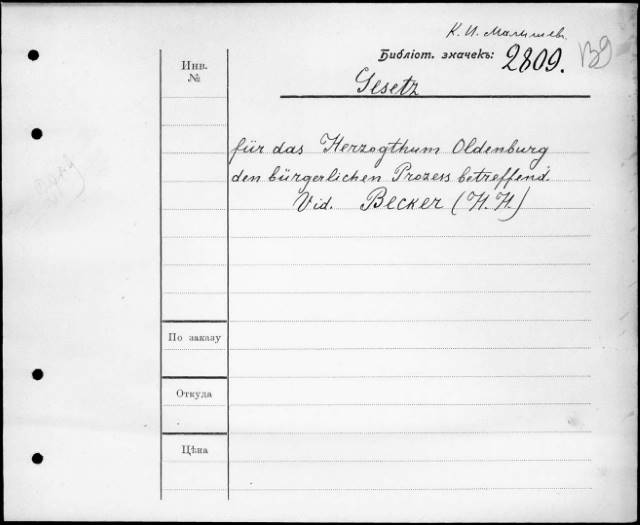 К. И. Малышев.
Библіот. значекъ: 2809.
Инв.
№
Gesetz
für das Herzogthum Oldenburg
den bürgerlichen Prozess betreffend.
Vid. Becker (H. H.)
По заказу
Откуда
Цѣна